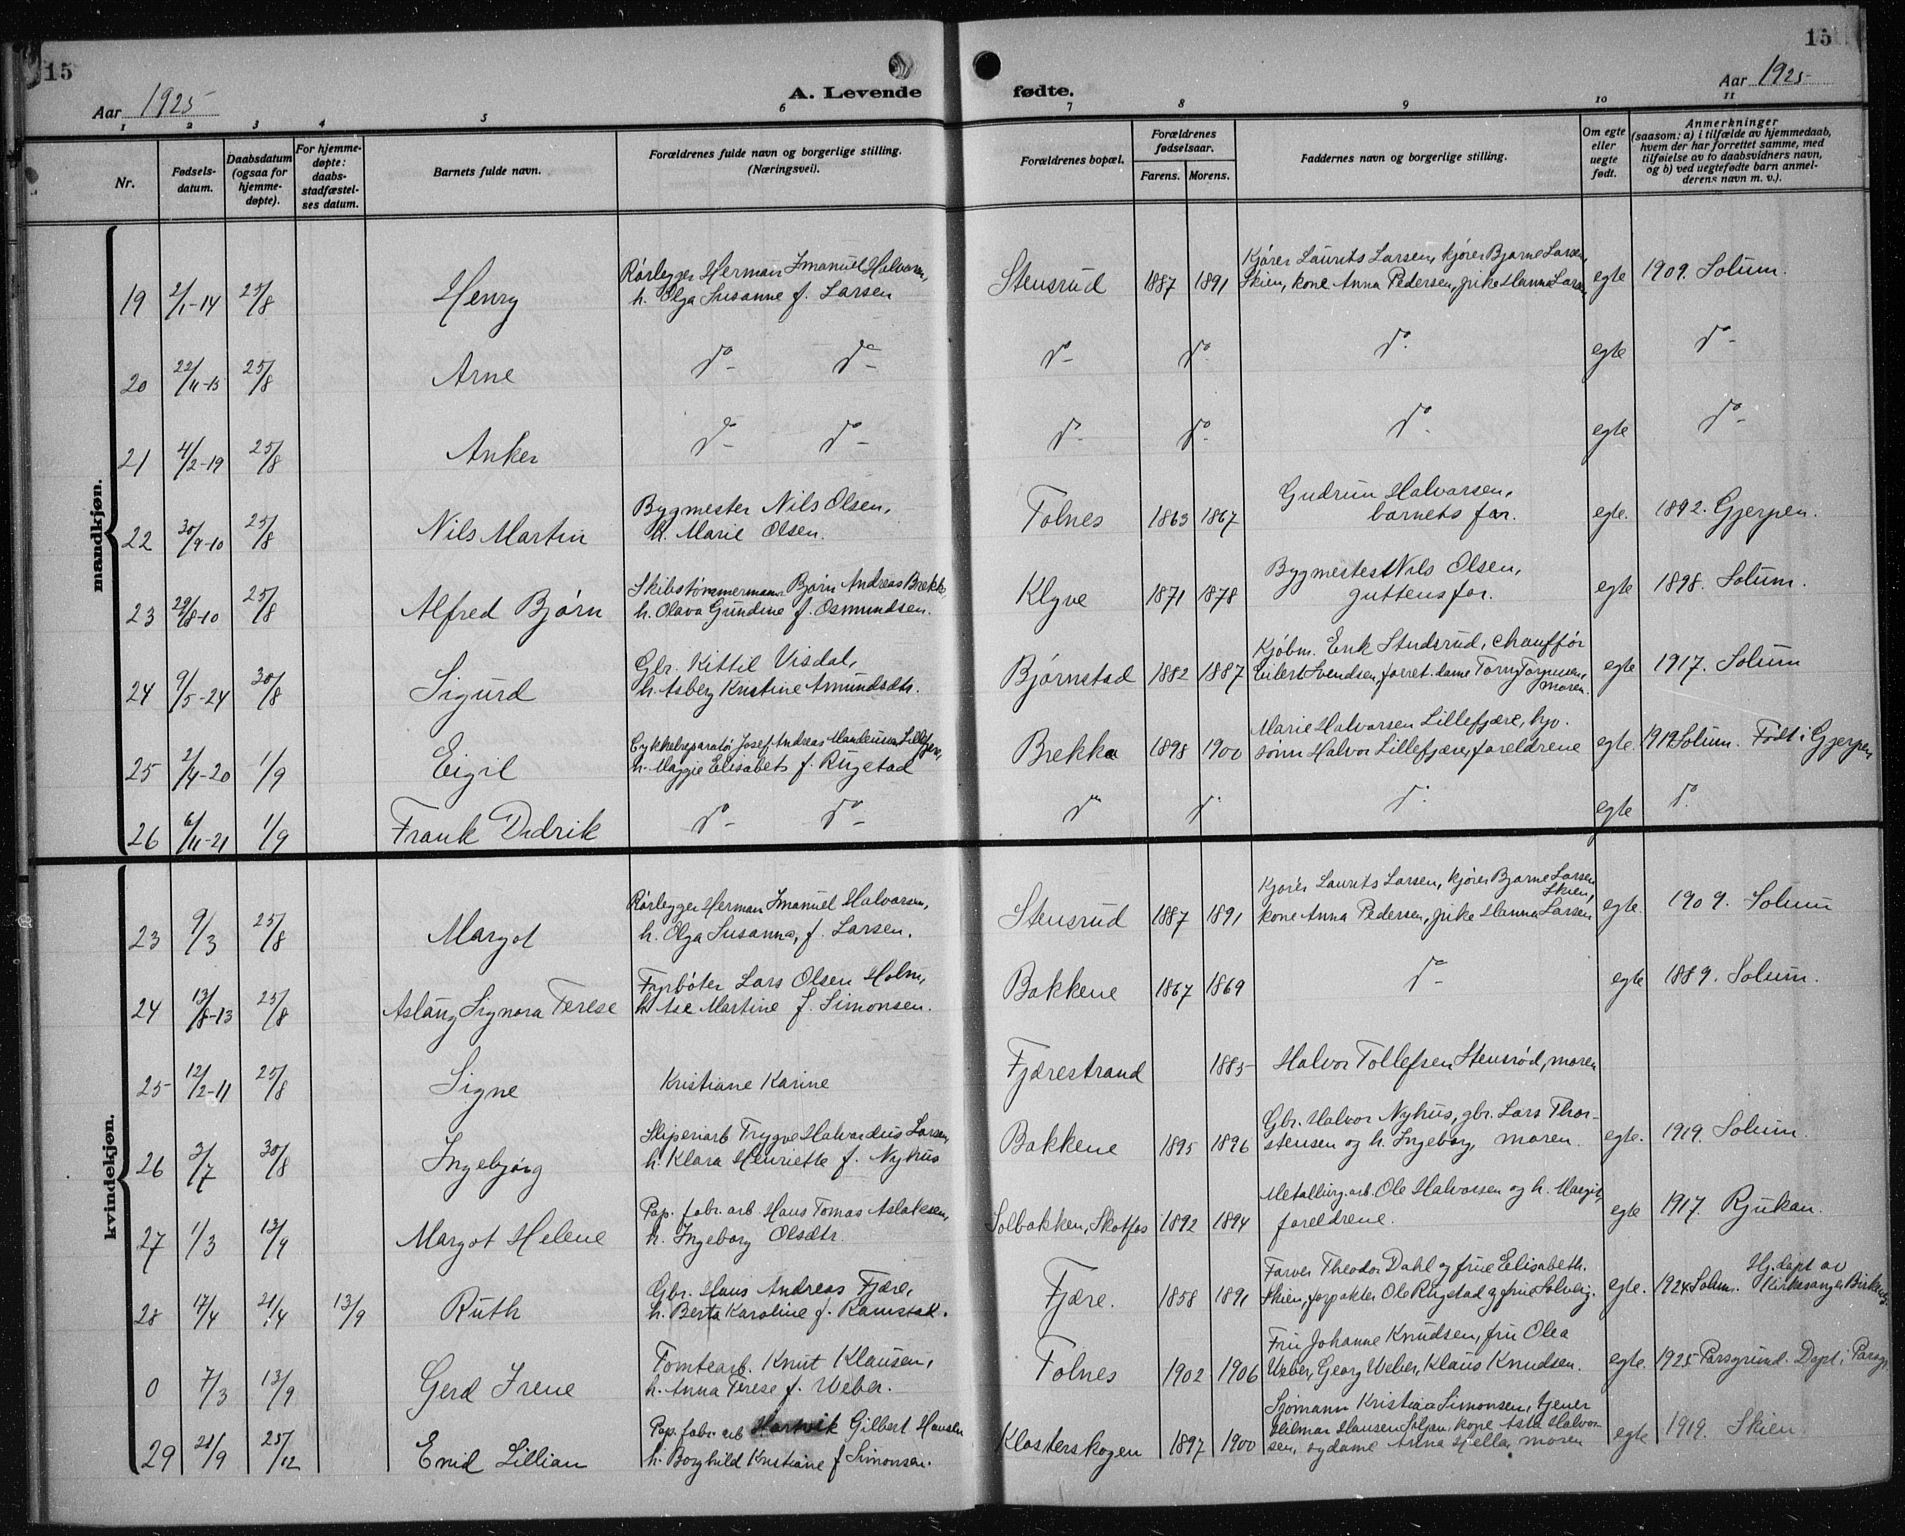 15
15
Aar 1925
A. Levende fødte.
Aar 1925
1 2 3 4 5 6 7 8 9 10 11
Nr.
Fødsels-
datum.
Daabsdatum
(ogsaa for
hjemme-
døpte).
For hjemme-
døpte:
daabs-
stadfæstel-
ses datum.
Barnets fulde navn.
Forældrenes fulde navn og borgerlige stilling.
(Næringsvei).
Forældrenes bopæl.
Forældrenes
fødselsaar.
Farens. Morens.
Faddernes navn og borgerlige stilling.
Om egte
eller
uegte
født.
Anmerkninger
(saasom: a) i tilfælde av hjemmedaab,
hvem der har forrettet samme, med
tilføielse av to daabsvidners navn,
og b) ved uegtefødte barn anmel-
derens navn m. v.).
mandkjøn.
Rørlegger Herman Imanuel Halvorsen, Kjører Laurits Larsen, kjører Bjarne Larsen,
19 2/1-14 25/8 Henry h. Olga Susanne f. Larsen Stensrud 1887 1891 Skien, kone Anna Pedersen, pike Hanna Larsen egte 1909. Solum.
20 22/11-15 25/8 Arne do do do do do egte do
21 4/2-19 25/8 Anker do do do do do egte do
Bygmester Nils Olsen, Gudrun Halvorsen,
22 30/9-10 25/8 Nils Martin h. Marie Olsen. Tolnes 1863 1867 barnets far. egte. 1892. Gjerpen.
Skibstømmermann Bjørn Andreas Brekke Bygmester Nils Olsen,
23 29/8-10 25/8 Alfred Bjørn h. Olava Gundine f. Osmundsen. Klyve 1871 1878 guttens far. egte 1898. Solum.
Gbr. Kittil Visdal, Kjøbm. Erik Studsrud, chauffør
24 9/5-24 30/8 Sigurd h. Asberg Kristine Amundsdtr. Bjørnstad 1882 1887 Eilert Svendsen, forret. dame Torny Torgersen, moren. egte 1917. Solum
Cykkelreparatør Josef Andreas Lillefjære, Marie Halvorsen Lillefjære,
25 2/4-20 1/9 Eigil h. Maggie Elisabets f. Rugstad Brekka 1898 1900 sønn Halvor Lillefjære, foreldrene egte. 1919 Solum. Født i Gjerpen
26 6/11-21 1/9 Frank Didrik do do do do do egte do
kvindekjøn.
Rørlegger Herman Imanuel Halvorsen, Kjører Laurits Larsen, kjører Bjarne Larsen Skien,
23 9/3 25/8 Margot h. Olga Susanna, f. Larsen. Stensrud 1887 1891 kone Anna Pedersen, pike Hanna Larsen egte. 1909. Solum
Fyrbøter Lars Olsen Holm,
24 13/8-13 25/8 Aslaug Signora Terese h. Ase Martine f. Simonsen. Bakkene 1867 1869 do egte 1889. Solum.
25 12/2-11 25/8 Signe Kristiane Karine Fjærestrand 1885 Halvor Tollefsen Stensrød, moren
Sliperiarb Trygve Halvardius Larsen, Gbr. Halvor Nyhus, gbr. Lars Thor-
26 3/7 30/8 Ingebjørg h. Klara Henriette f. Nyhus Bakkene 1895 1896 stensen og h. Ingeborg, moren. egte. 1919. Solum.
Pap. fabr. arb Hans Tomas Aslaksen, Metallurg. arb. Ole Halvorsen og h. Margit,
27 1/3 13/9 Margot Helene h. Ingeborg Olsdtr. Solbakken, Skotfos 1892 1894 foreldrene. egte 1917. Rjukan.
Gbr. Hans Andreas Fjære, Farver Theodor Dahl og frue Elisabeth. Hj. døpt av
28 17/4 21/4 13/9 Ruth h. Berta Karoline f. Ramstad. Fjære. 1858 1891 Skien, forpakter Ole Rugstad og frue Solveig. egte. 1924 Solum. Kirkesanger
Tomtearb. Knut Klausen, Fru Johanne Knudsen, fru Olea
0 7/3 13/9 Gerd Irene h. Anna Terese f. Weber. Tolnes 1902 1906 Weber, Georg Weber, Klaus Knudsen. egte. 1925 Porsgrund. Døpt i Porsgr.
Pap. fabr. arb Hartvik Gilbert Hansen Sjømann Kristian Simonsen, tjener
29 21/9 25/12 Enid Lillian h. Borghild Kristiane f Simonsen. Klosterskogen 1897 1900 Hilmar Hansen Soljan, kone Asta Halvor-
sen, sydame Anna Hella, moren egte 1919. Skien.